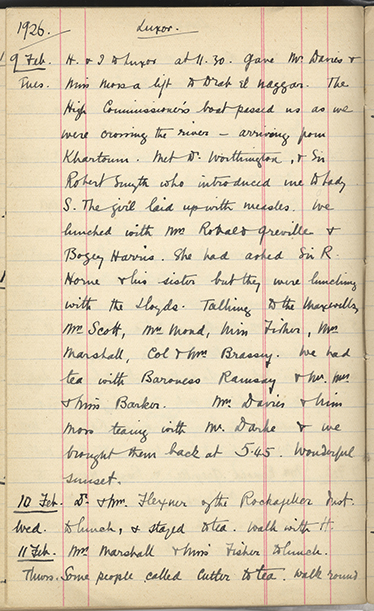 1926. Luxor.
9 Feb. H. & I to Luxor at 11.30. Gave Mr. Davies &
Tues. Miss Moss a lift to Drah el Naggar. The
High Commissioner's boat passed us as we
were crossing the river – arriving from
Khartoum. Met Dr. Worthington, & Sir
Robert Smyth who introduced me to Lady
S. The girl laid up with measles. We
lunched with Mrs Ronald Greville &
Bogey Harris. She had asked Sir R.
Horne & his sister but they were lunching
with the Lloyds. Talking to the Maxwells,
Mr Scott, Mrs Mond, Miss Fisher, Mrs
Marshall, Col & Mrs Brassey. We had
tea with Baroness Ramsay & Mr. Mrs
& Miss Barker. Mr. Davies & Miss
Moss teaing with Mr. Darke & we
brought them back at 5.45. Wonderful
sunset.
10 Feb. Dr. & Mrs. Flexner of the Rockafeller Inst.
Wed. to lunch, & stayed to tea. Walk with H.
11 Feb. Mrs. Marshall & Miss Fisher to lunch.
Thurs. Some people called Cutter to tea. Walk round